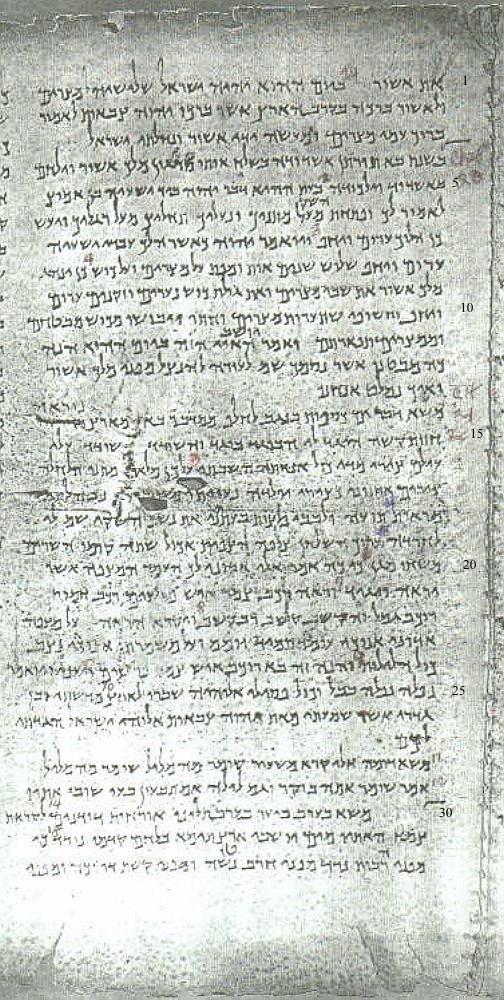 את אשור ביום ההוא יהיה ישראל שלישיה למצרים
ולאשור ברכה בקרב הארץ אשר ברכו יהוה צבאות לאמור
ברוך עמי מצרים ומעשה ידי אשור ונחלתי ישראל
בשנת בא תורתן אשדודה בשלח אותו מלך אשור וילחם
5 באשדוד וילכודה בעת ההיא דבר יהוה ביד ישעיהו בן אמוץ
לאמור לך ופתחת השק מעל מותניך ונעליך מעל רגליך ויעש
כן הלוך ערום ויחף ויואמר יהוה כאשר הלך עבדי ישעיה
ערום ויחף שלוש שנים אות ומופת על מצרים ועל כוש כן ינהג
מלך אשור את שבי מצרים ואת גולת כוש נערים וזקנים ערום
10 ויחף וחשופי שת ערות מצרים וחתו ויבושו מכוש מבטחם
וממצרים תפארתם ואמר יושב האי הזה ביום ההוא הנה
מבטנו אשר נסמך שם לעזרה להנצל מפני מלך אשור
ואיך נמלט אנחנו
משא דבר ים בנגב לחלוף ממדבר בא מארץ
15 חזות קשה הוגד לי הבוגד בוגד והשודד
מדי כול השבתי מתני חלחלה
צירים אחזוני כצירי יולדה נעויתי
את נשף
ערוך השולחן אכול שתה קומו השרים
20 כי כוה אמר אלי אדוני לך העמד המצפה אשר
יראה וראה רכב צמד איש פרשים רכב חמור
רוכב גמל והקשב קשב רב קשב ויקרא הראה על מצפה
אדוני אנוכי עומד יומם ועל משמרתי אנוכי נצב
כול הלילות והנה זה בא רוכב איש צמד פרשים ויואמר
25 נפלה נפלה בבל וכול פסילי אלוהיה שברו לארץ
אשר שמעתי מאת יהוה צבאות אלוהי ישראל הגדתי
לכם
משא דומה אלי קורא משעיר שומר מה מליל שומר מה מליל
אמר שומר אתה בוקר וגם לילה אם תבעון בעיו שובו אתיו
30 משא בערב ביער בערב תלינו אורחות
צמא האתיו מים ישבי ארץ תימא בלחם קדמו נודד כי
מפני רבות נדדו מפני חרב נטשה ומפני קשת דרוכה ומפני